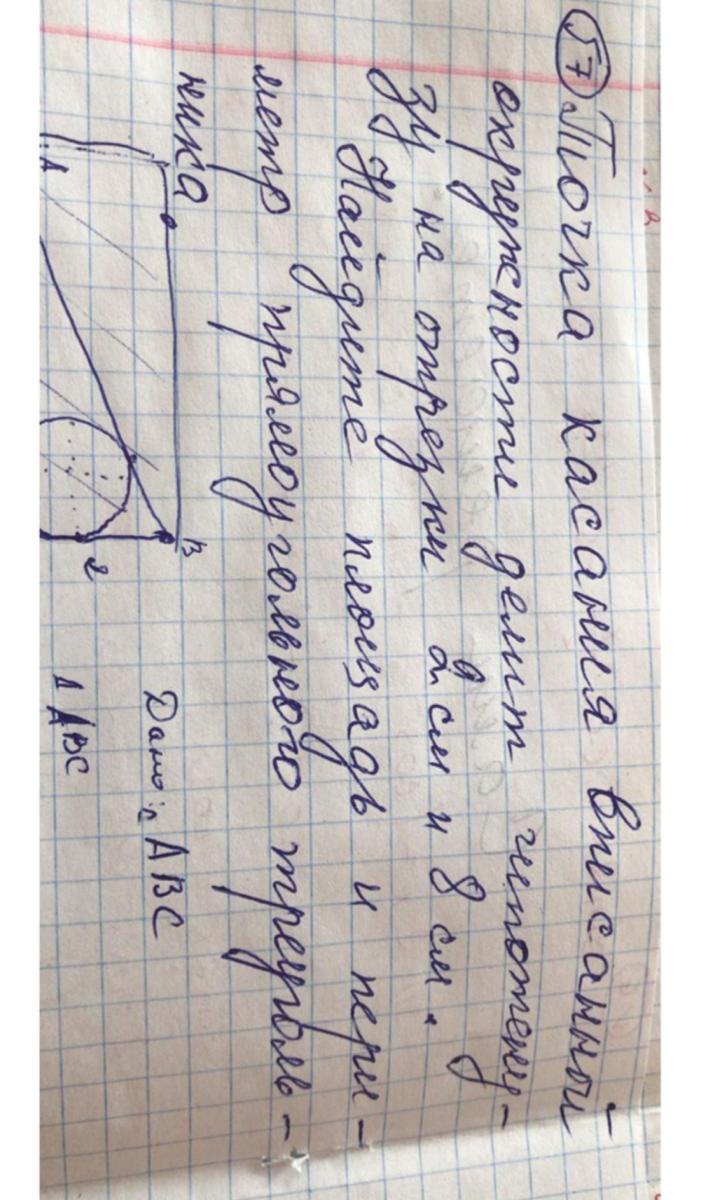 57 Точка касания вписанной
окружности делит гипотену-
зу на отрезки 2см и 8см.
Найдите площадь и пери-
метр прямоугольного треуголь-
ника
B
Дано: ABC
2
A
Δ ABC